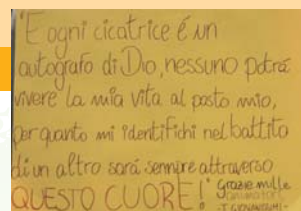 "E ogni cicatrice é un
autografo di Dio, nessuno potrá
vivere la mia vita al posto mio,
per quanto mi identifichi nel battito
di un altro sará sempre attraverso
QUESTO CUORE!" Grazie mille
animatori
-I GIOVANISSIMI-